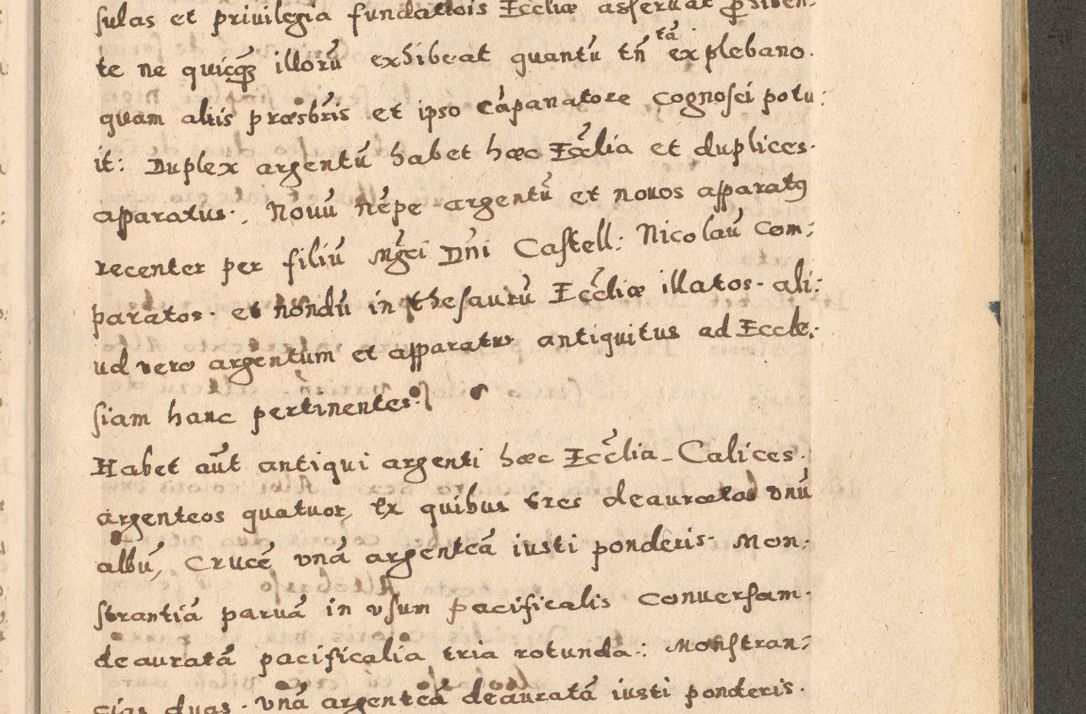 sulas et priuilegia fundatiois Eccliæ asseruat
te ne quicq illorū exhibeat quantū tn̄ tā ex plebano.
quam aliis præsbr̄is et ipso Cāpanatore cognosci potu:
it: Duplex argentū habet hæc Ecclia et duplices.
apparatus., Nouū nēpe argentū et nouos apparatꝯ
recenter per filiū Mgci Dn̄i Castell: Nicolaū com:
paratos. et nondū in thesaurū Eccliæ illatos. ali:
ud vero argentum et apparatus antiquitus ad Eccle:
siam hanc pertinentes.
Habet aūt antiqui argenti hæc Ecclia. Calices.
argenteos quatuor, Ex quibus tres deauratos vnū
albū, Crucē vnā argenteā iusti ponderis. Mon:
strantiā paruā in vsum pacificalis conuersam.
deauratā pacificalia tria rotunda: Monstran:
cias duas. vnā argenteā deauratā iusti ponderis.